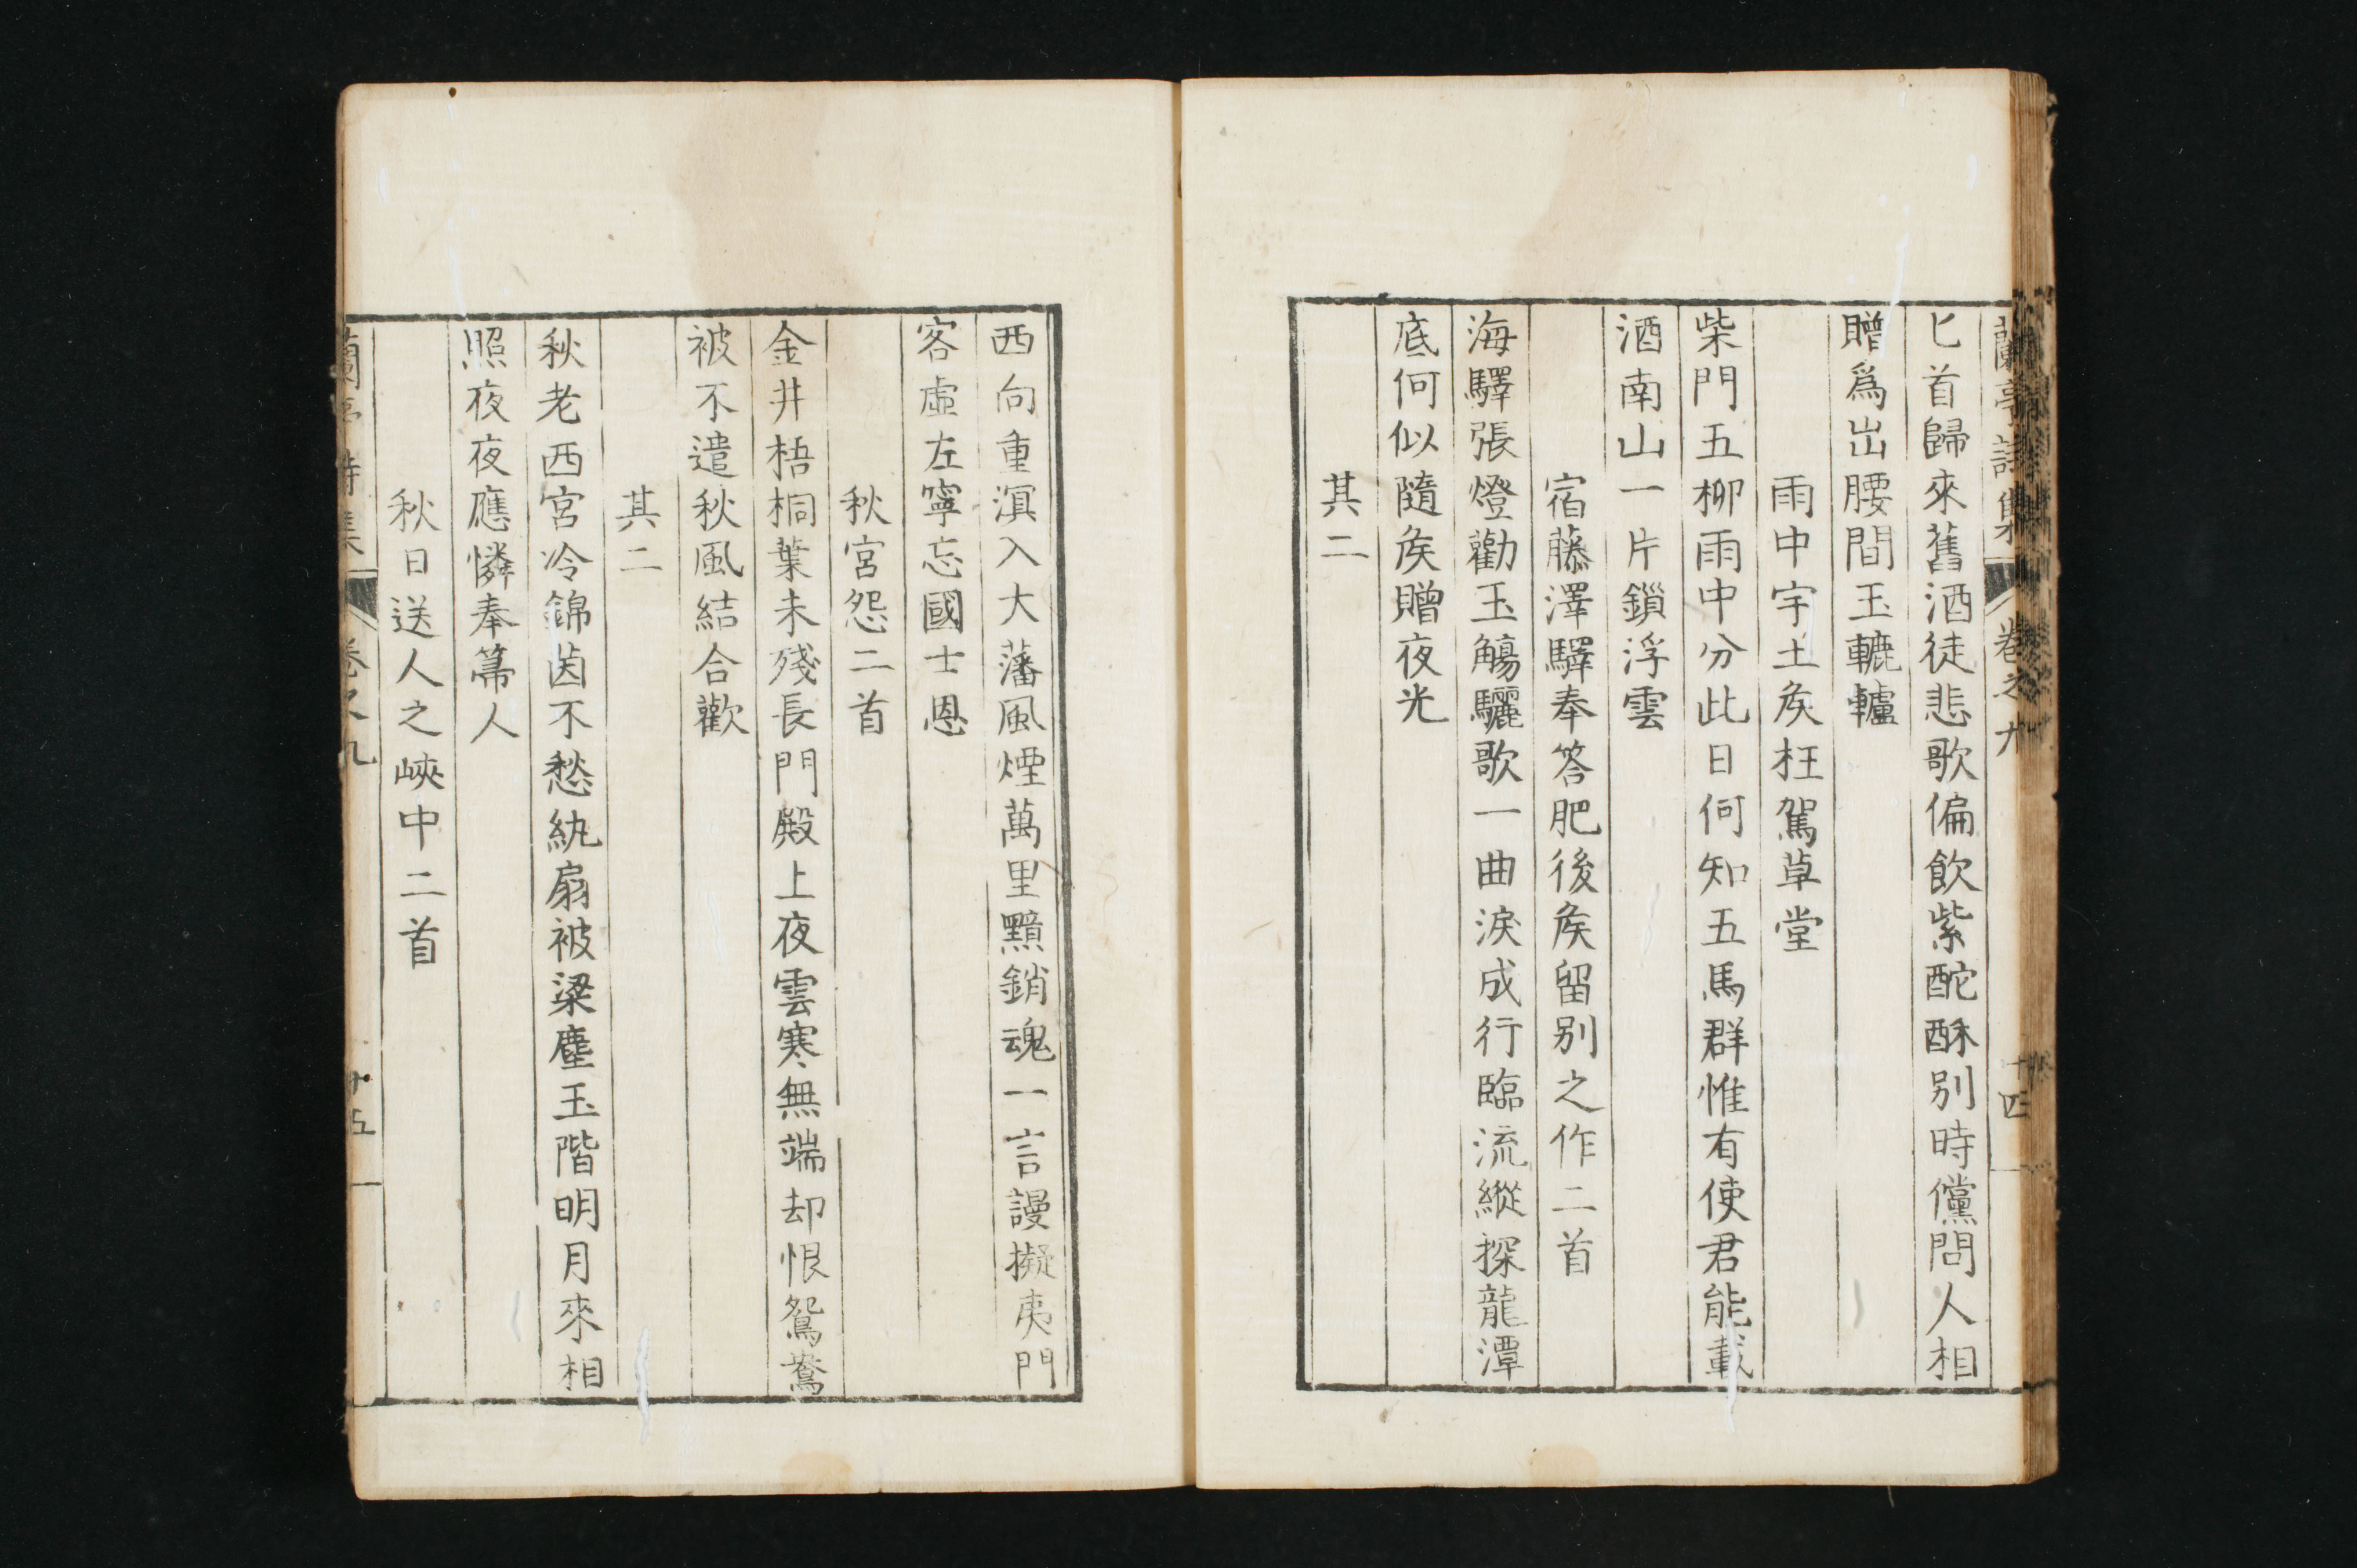 蘭亭詩集 卷之九 十四
匕首歸來舊酒徒悲歌偏飲紫酡酥別時儻問人相
贈爲出腰間玉轆轤
雨中宇土矦枉駕草堂
柴門五柳雨中分此日何知五馬群惟有使君能載
酒南山一片鎖浮雲
宿藤澤驛奉答肥後矦留別之作二首
海驛張燈勸玉觴驪歌一曲淚成行臨流縱探龍潭
底何似隨矦贈夜光
其二
西向重溟入大藩風煙萬里黯銷魂一言謾擬夷門
客虛左寧忘國士恩
秋宮怨二首
金井梧桐葉未殘長門殿上夜雲寒無端却恨鴛鴦
被不遣秋風結合歡
其二
秋老西宮冷錦茵不愁紈扇被梁塵玉階明月來相
照夜夜應憐奉箒人
秋日送人之峽中二首
蘭亭詩集 卷之九 十五